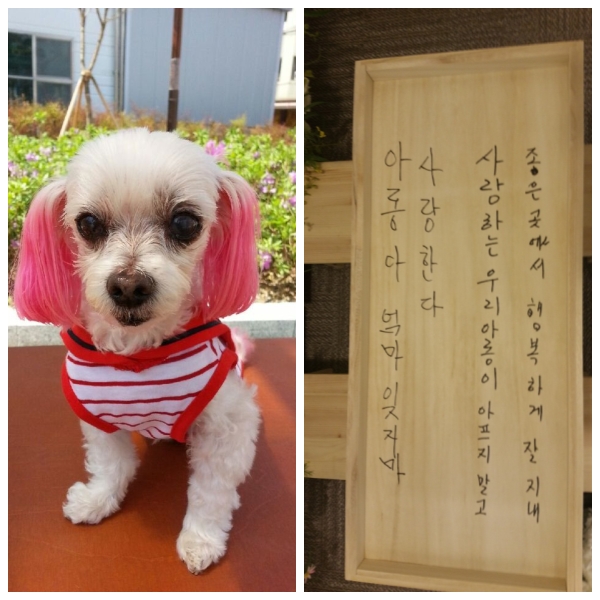 아롱아 엄마 잊지마
사랑한다
사랑하는 우리 아롱이 아프지 말고
좋은 곳에서 행복하게 잘 지내